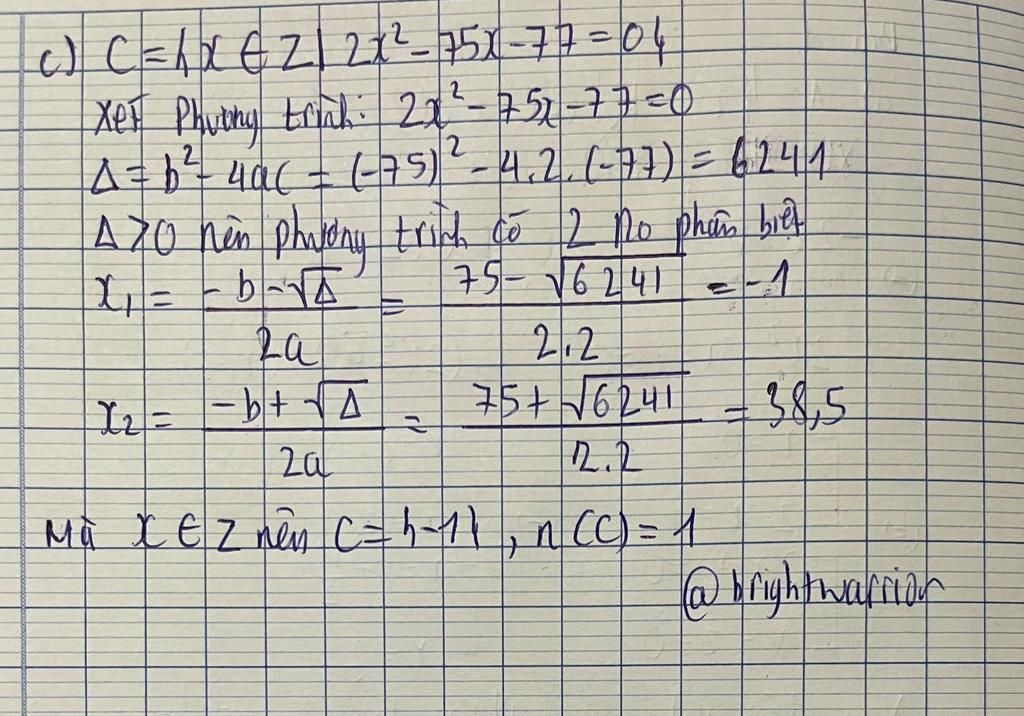 c) C = { x ∈ Z | 2x² - 75x - 77 = 0 }
Xét phương trình: 2x² - 75x - 77 = 0
Δ = b² - 4ac = (-75)² - 4.2.(-77) = 6241
Δ > 0 nên phương trình có 2 no phân biệt
x₁ = (-b - √Δ)/(2a) = (75 - √6241)/(2.2) = -1
x₂ = (-b + √Δ)/(2a) = (75 + √6241)/(2.2) = 38,5
Mà x ∈ Z nên C = {-1}, n(C) = 1
@brightwarrior